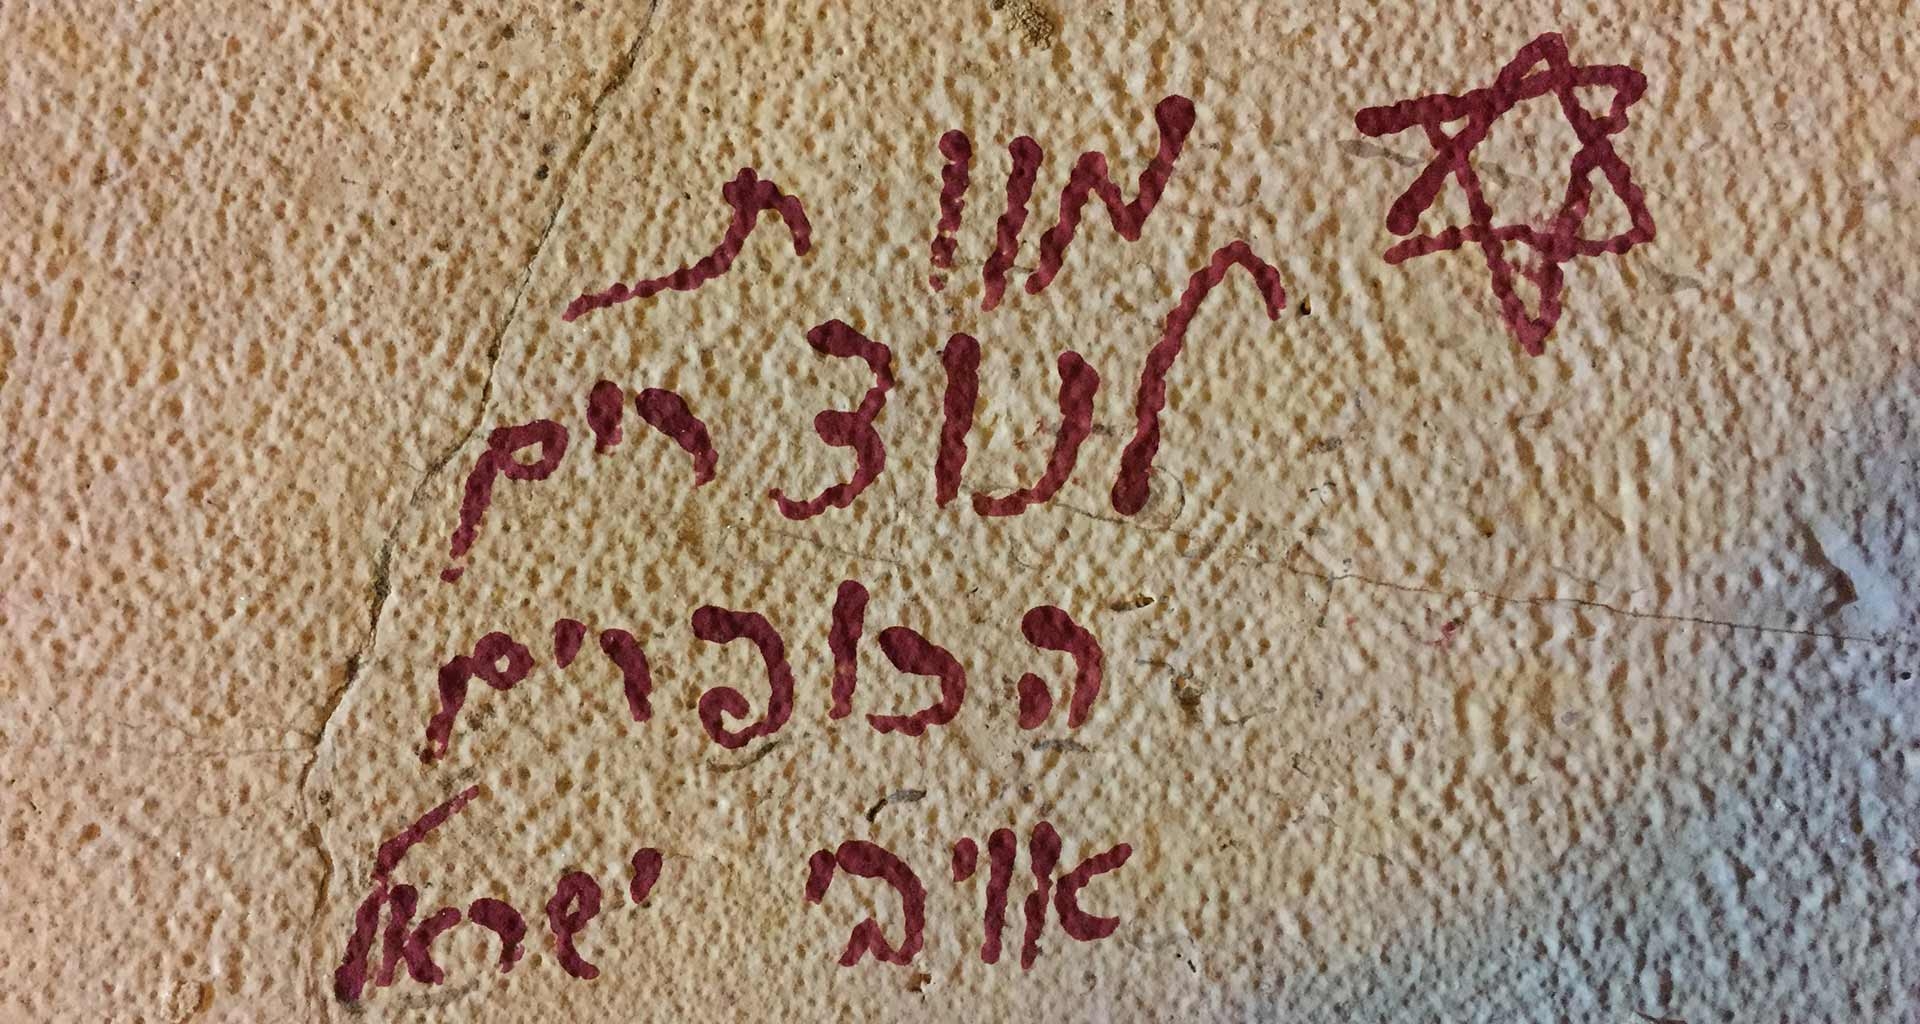 מוות
לנוצרים
הכופרים
אויב ישראל